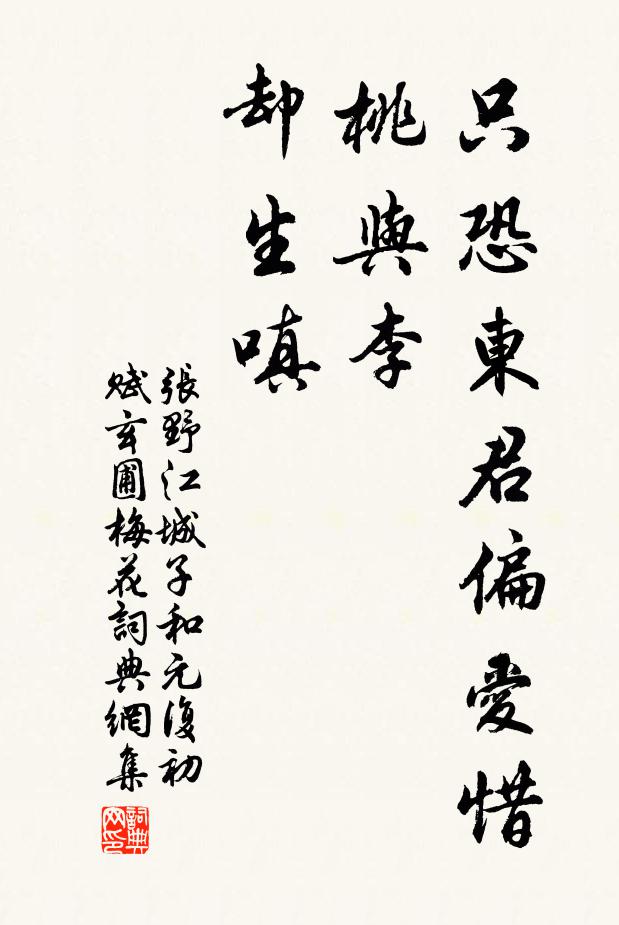 只恐東君偏愛惜
桃與李
却生嗔
張野江城子和元復初
賦玄圃梅花詞典網集
詞典
网印